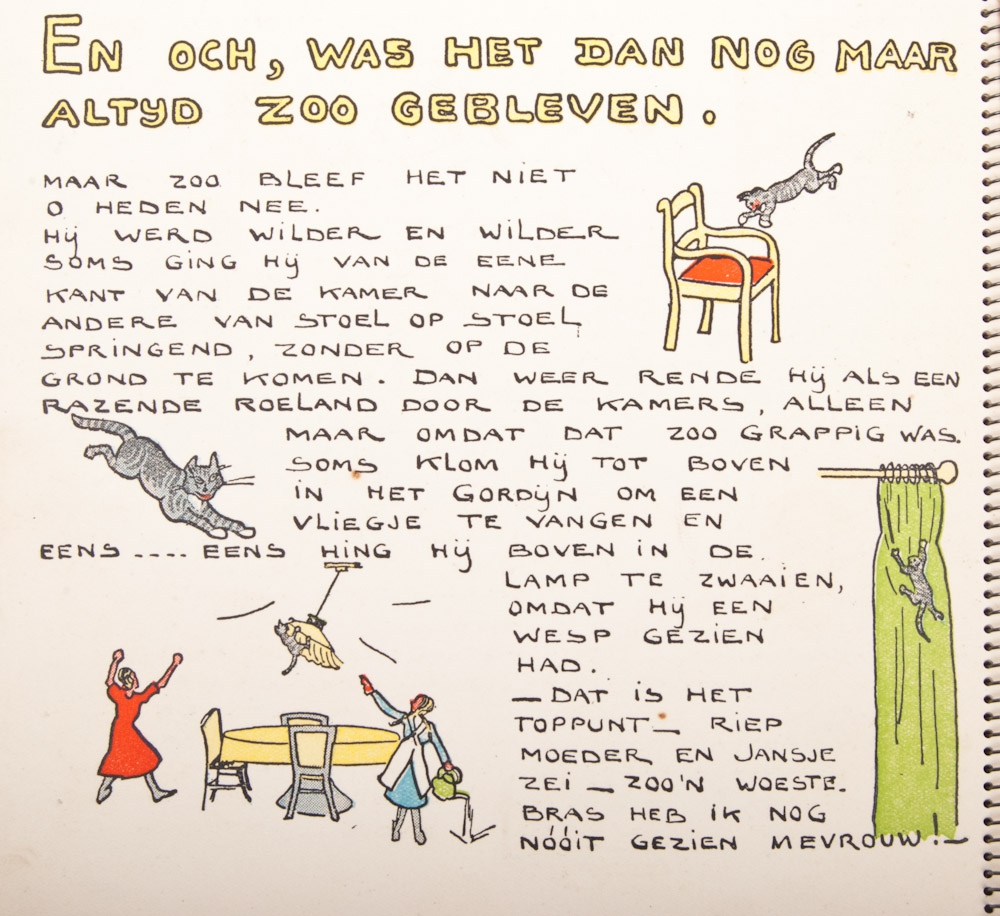 EN OCH, WAS HET DAN NOG MAAR
ALTYD ZOO GEBLEVEN.
MAAR ZOO BLEEF HET NIET
O HEDEN NEE.
Hij WERD WiLDER EN WiLDER
SOMS GING Hij VAN DE EENE
KANT VAN DE KAMER NAAR DE
ANDERE VAN STOEL OP STOEL
SPRINGEND, ZONDER OP DE
GROND TE KOMEN. DAN WEER RENDE Hij ALS EEN
RAZENDE ROELAND DOOR DE KAMERS, ALLEEN
MAAR OMDAT DAT ZOO GRAPPiG WAS.
SOMS KLOM Hij TOT BOVEN
iN HET GORDijN OM EEN
VLiEGJE TE VANGEN EN
EENS .... EENS HING Hij BOVEN iN DE
LAMP TE ZWAAiEN,
OMDAT Hij EEN
WESP GEZiEN
HAD.
— DAT iS HET
TOPPUNT — RiEP
MOEDER EN JANSJE
ZEi — ZOO'N WOESTE.
BRAS HEB iK NOG
NÓÓiT GEZiEN MEVROUW! —